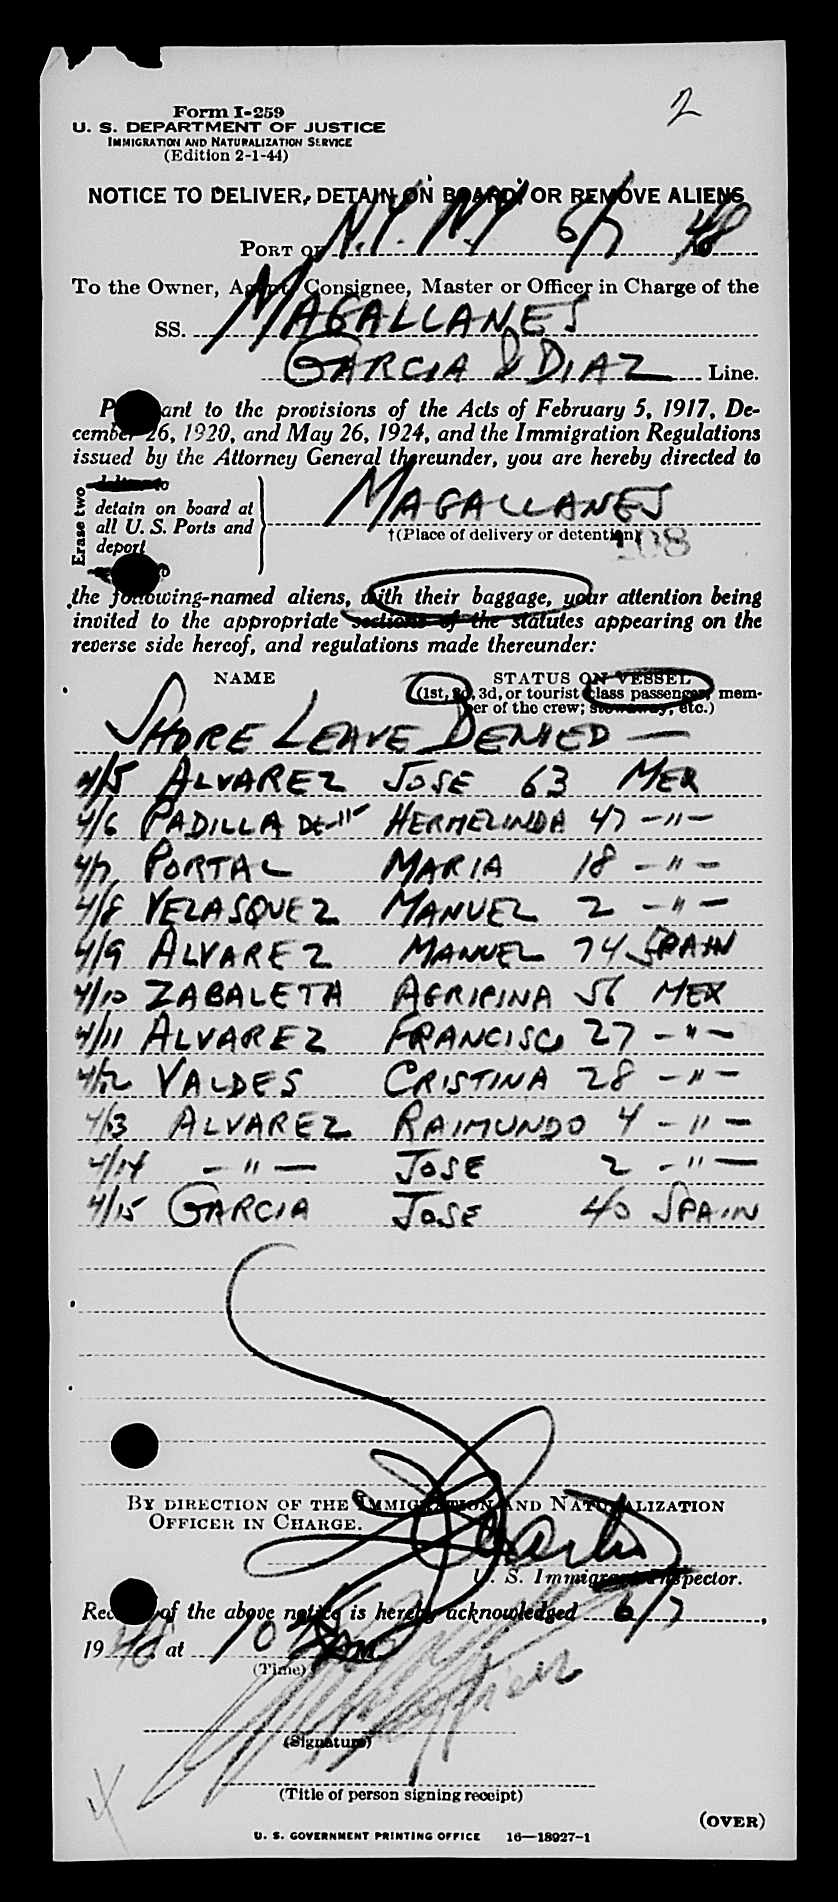 2
Form I-259
U. S. DEPARTMENT OF JUSTICE
IMMIGRATION AND NATURALIZATION SERVICE
(Edition 2-1-44)
NOTICE TO DELIVER, DETAIN ON BOARD, OR REMOVE ALIENS
PORT OF N.Y. N.Y 6/7 48
To the Owner, Agent, Consignee, Master or Officer in Charge of the
SS. MAGALLANES
GARCIA & DIAZ Line.
Pursuant to the provisions of the Acts of February 5, 1917, De-
cember 26, 1920, and May 26, 1924, and the Immigration Regulations
issued by the Attorney General thereunder, you are hereby directed to
Erase two
detain on board at
all U. S. Ports and
deport
MAGALLANES
†(Place of delivery or detention)
108
the following-named aliens, with their baggage, your attention being
invited to the appropriate sections of the statutes appearing on the
reverse side hereof, and regulations made thereunder:
NAME STATUS ON VESSEL
(1st, 2d, 3d, or tourist class passenger, mem-
ber of the crew; stowaway, etc.)
SHORE LEAVE DENIED —
4/5 ALVAREZ JOSE 63 MEX
4/6 PADILLA DE -"- HERMELINDA 47 -"-
4/7 PORTAL MARIA 18 -"-
4/8 VELASQUEZ MANUEL 2 -"-
4/9 ALVAREZ MANUEL 74 SPAIN
4/10 ZABALETA AGRIPINA 56 MEX
4/11 ALVAREZ FRANCISCO 27 -"-
4/12 VALDES CRISTINA 28 -"-
4/13 ALVAREZ RAIMUNDO 4 -"-
4/14 -"- JOSE 2 -"-
4/15 GARCIA JOSE 40 SPAIN
BY DIRECTION OF THE IMMIGRATION AND NATURALIZATION
OFFICER IN CHARGE.
U. S. Immigrant Inspector.
Receipt of the above notice is hereby acknowledged 6/7,
1948 at 10 AM
(Time)
(Signature)
(Title of person signing receipt)
(OVER)
U. S. GOVERNMENT PRINTING OFFICE 16—18927-1